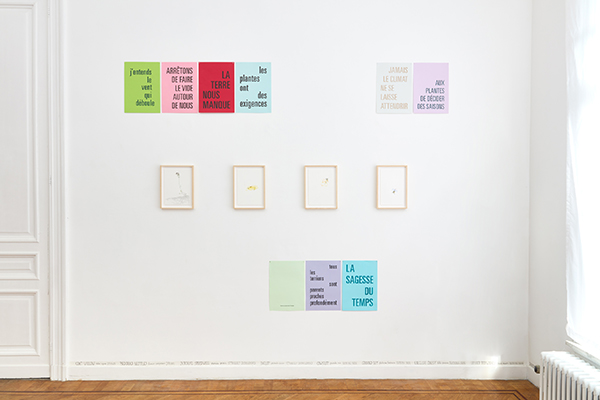 j'entends
le
vent
qui
déboule
ARRÊTONS
DE FAIRE
LE VIDE
AUTOUR
DE NOUS
LA
TERRE
NOUS
MANQUE
les
plantes
ont
des
exigences
JAMAIS
LE CLIMAT
NE SE
LAISSE
ATTENDRIR
AUX
PLANTES
DE DÉCIDER
DES SAISONS
tous
les
terriers
sont
proches
profondément
LA
SAGESSE
DU
TEMPS